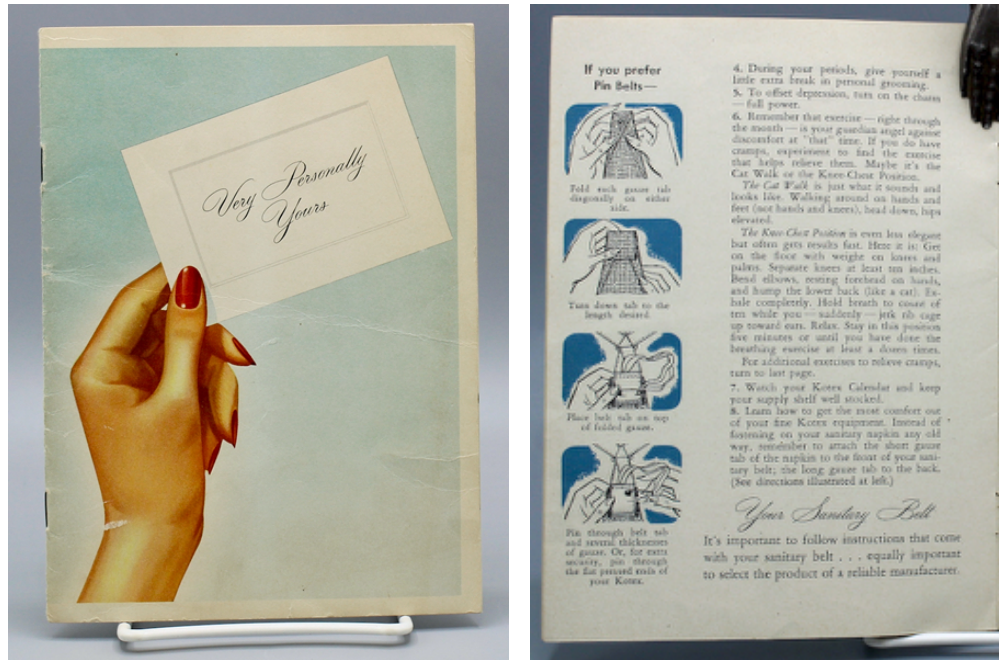 Very Personally
Yours
If you prefer
Pin Belts—
Fold each gauze tab
diagonally on either
side.
Turn down tab to the
length desired.
Place belt tab on top
of folded gauze.
Pin through belt tab
and several thicknesses
of gauze. Or, for extra
security, pin through
the flat pressed ends of
your Kotex.
4. During your periods, give yourself a
little extra break in personal grooming.
5. To offset depression, turn on the charm
— full power.
6. Remember that exercise — right through
the month — is your guardian angel against
discomfort at "that" time. If you do have
cramps, experiment to find the exercise
that helps relieve them. Maybe it's the
Cat Walk or the Knee-Chest Position.
The Cat Walk is just what it sounds and
looks like. Walking around on hands and
feet (not hands and knees), head down, hips
elevated.
The Knee-Chest Position is even less elegant
but often gets results fast. Here it is: Get
on the floor with weight on knees and
palms. Separate knees at least ten inches.
Bend elbows, resting forehead on hands,
and hump the lower back (like a cat). Ex-
hale completely. Hold breath to count of
ten while you — suddenly — jerk rib cage
up toward ears. Relax. Stay in this position
five minutes or until you have done the
breathing exercise at least a dozen times.
For additional exercises to relieve cramps,
turn to last page.
7. Watch your Kotex Calendar and keep
your supply shelf well stocked.
8. Learn how to get the most comfort out
of your fine Kotex equipment. Instead of
fastening on your sanitary napkin any old
way, remember to attach the short gauze
tab of the napkin to the front of your sani-
tary belt; the long gauze tab to the back.
(See directions illustrated at left.)
Your Sanitary Belt
It's important to follow instructions that come
with your sanitary belt . . . equally important
to select the product of a reliable manufacturer.